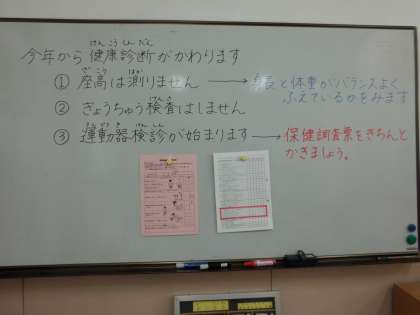 今年から健康診断がかわります
① 座高は測りません → 身長と体重がバランスよく
ふえているかをみます
② ぎょうちゅう検査はしません
③ 運動器検診が始まります → 保健調査票をきちんと
かきましょう。